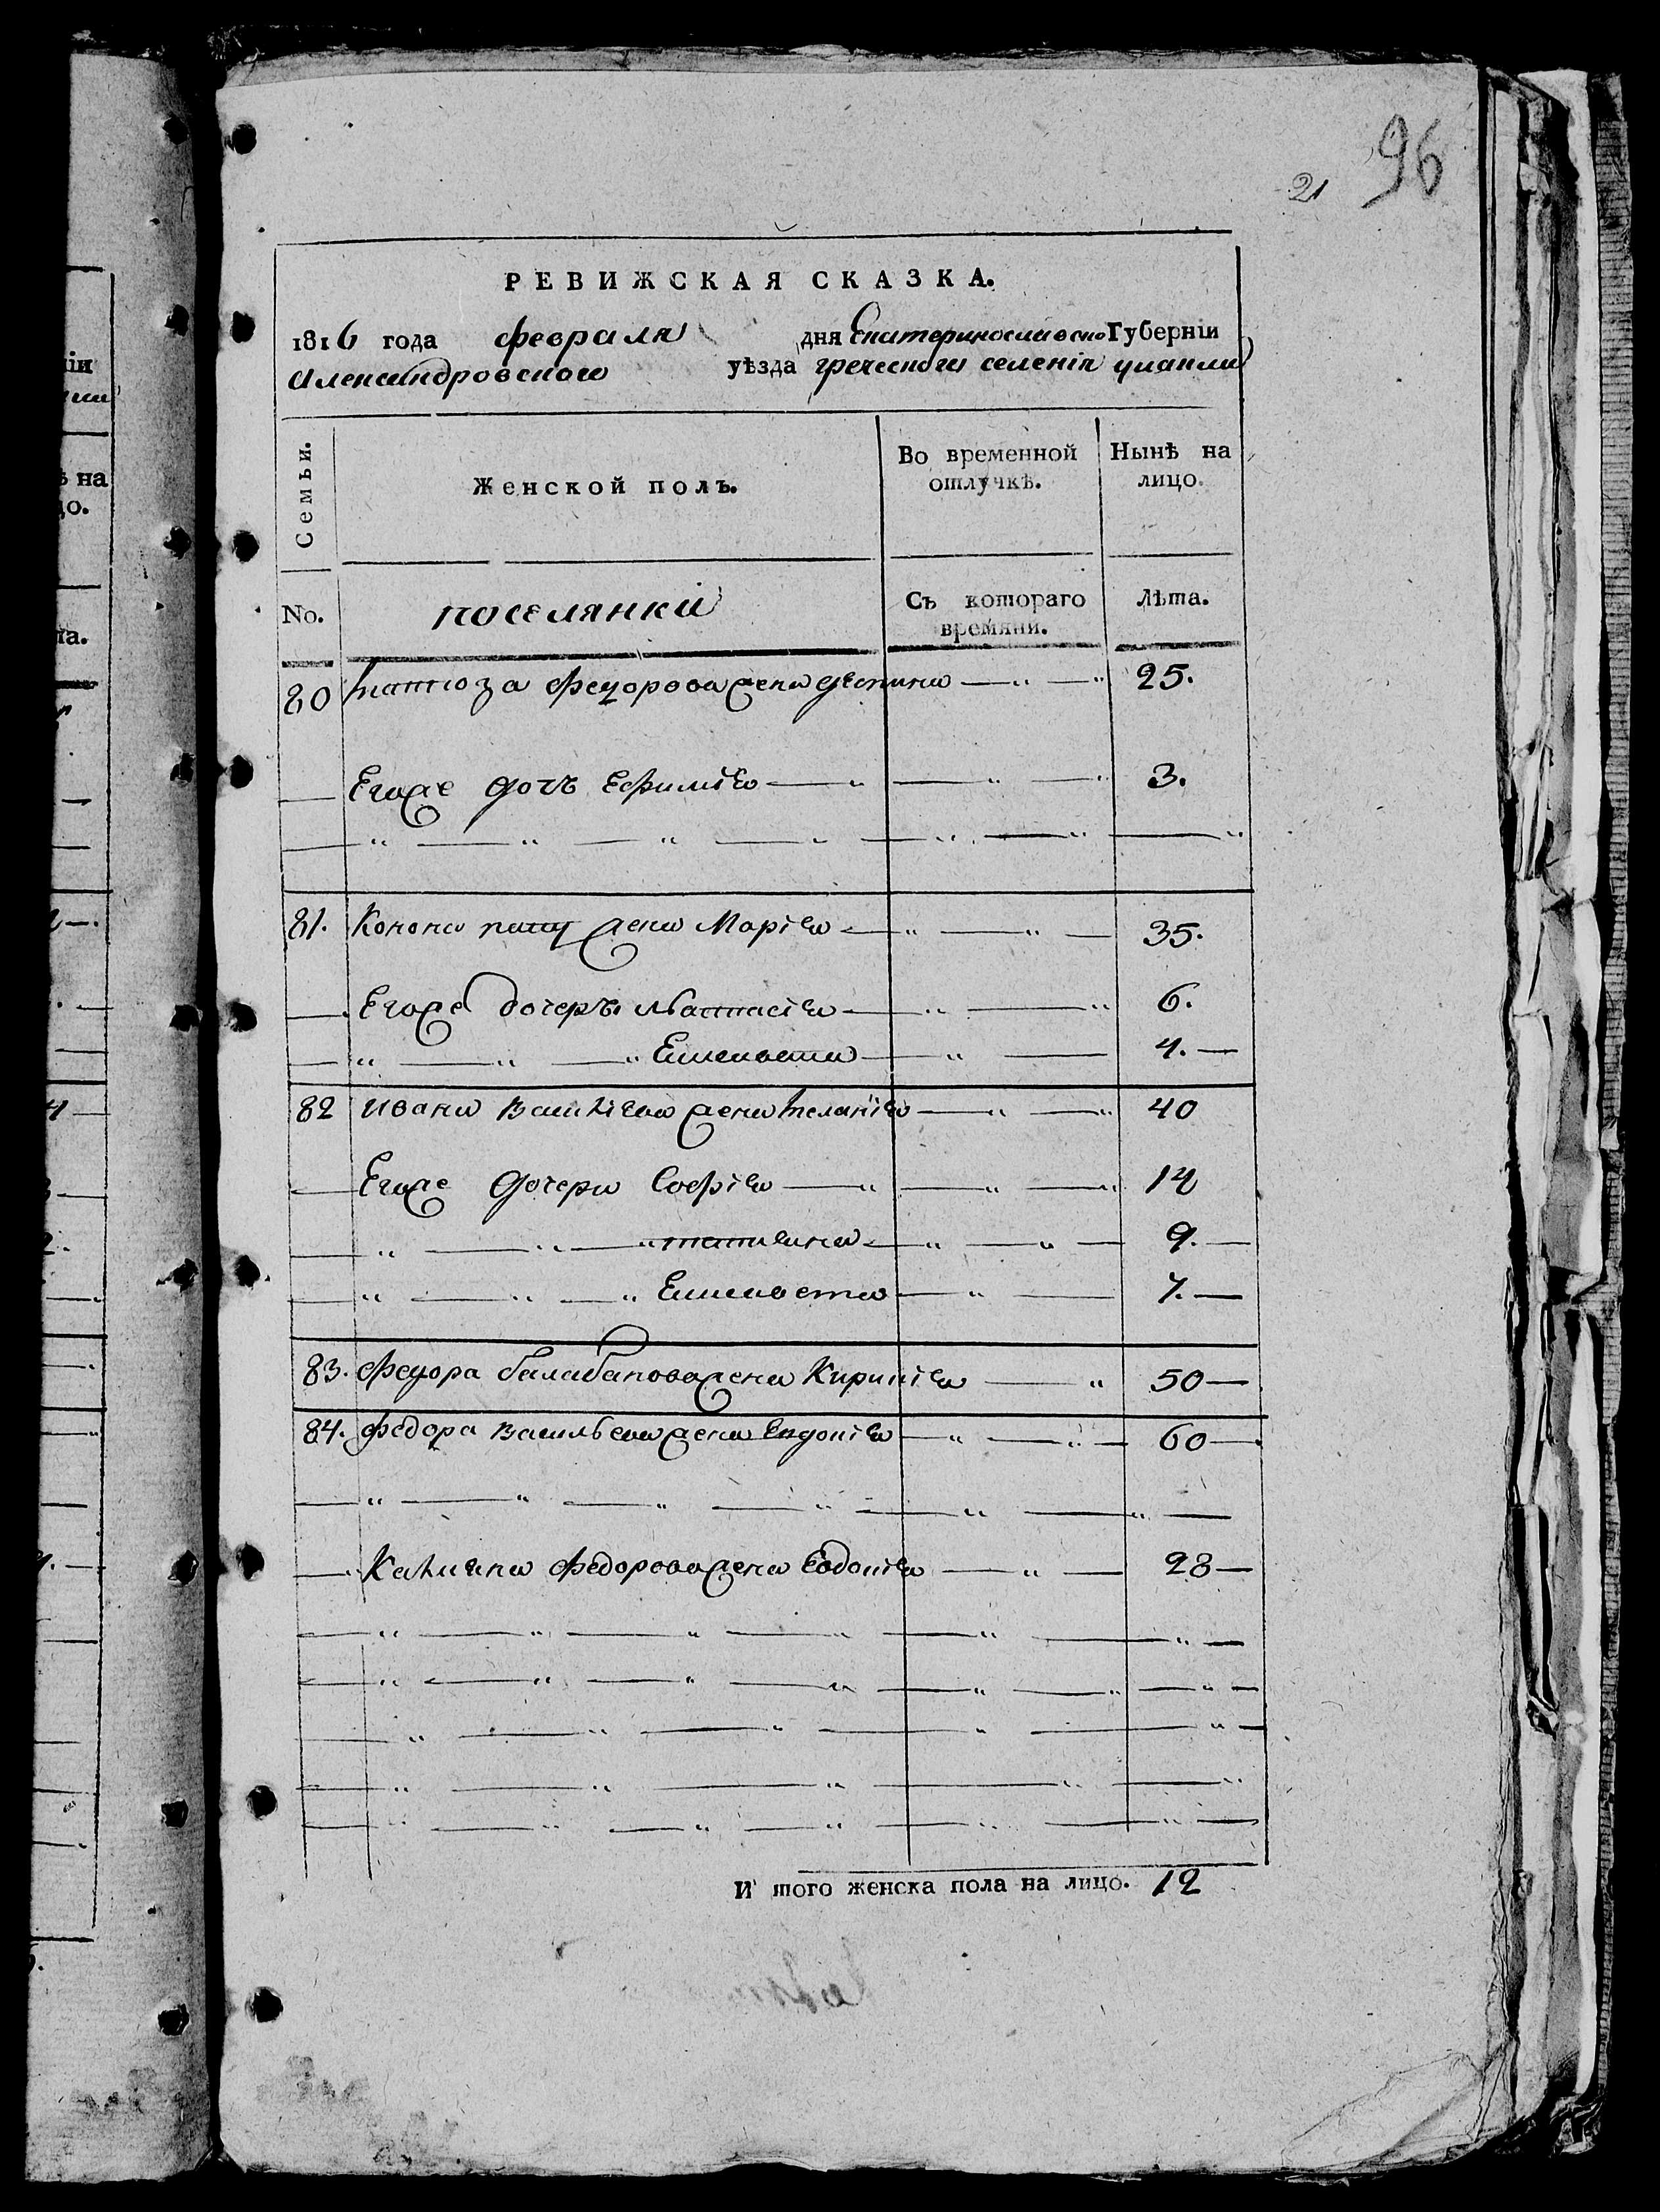 96
21
РЕВИЖСКАЯ СКАЗКА.
1816 года февраля дня Екатеринославско Губерніи
Александровскаго уѣзда греческаго селенія
Семьи.
Женской полъ.
Во временной отлучкѣ.
Нынѣ на лицо.
No.
поселянки
Съ котораго времяни.
Лѣта.
80 Федорова жена деспина 25.
Егоже дочь Ефимія 3.
81. Конона жена Марія 35.
Егоже дочерь 6.
" " " Елисавета 4.
82 Ивана Василіева жена 40
Егоже дочери Софія 14
" " " татиана 9.
" " " Елисавета 7.
83. Федора балабанова жена 50
84. Федора Васильева жена 60
Федорова жена Евдокія 28
И того женска пола на лицо. 12